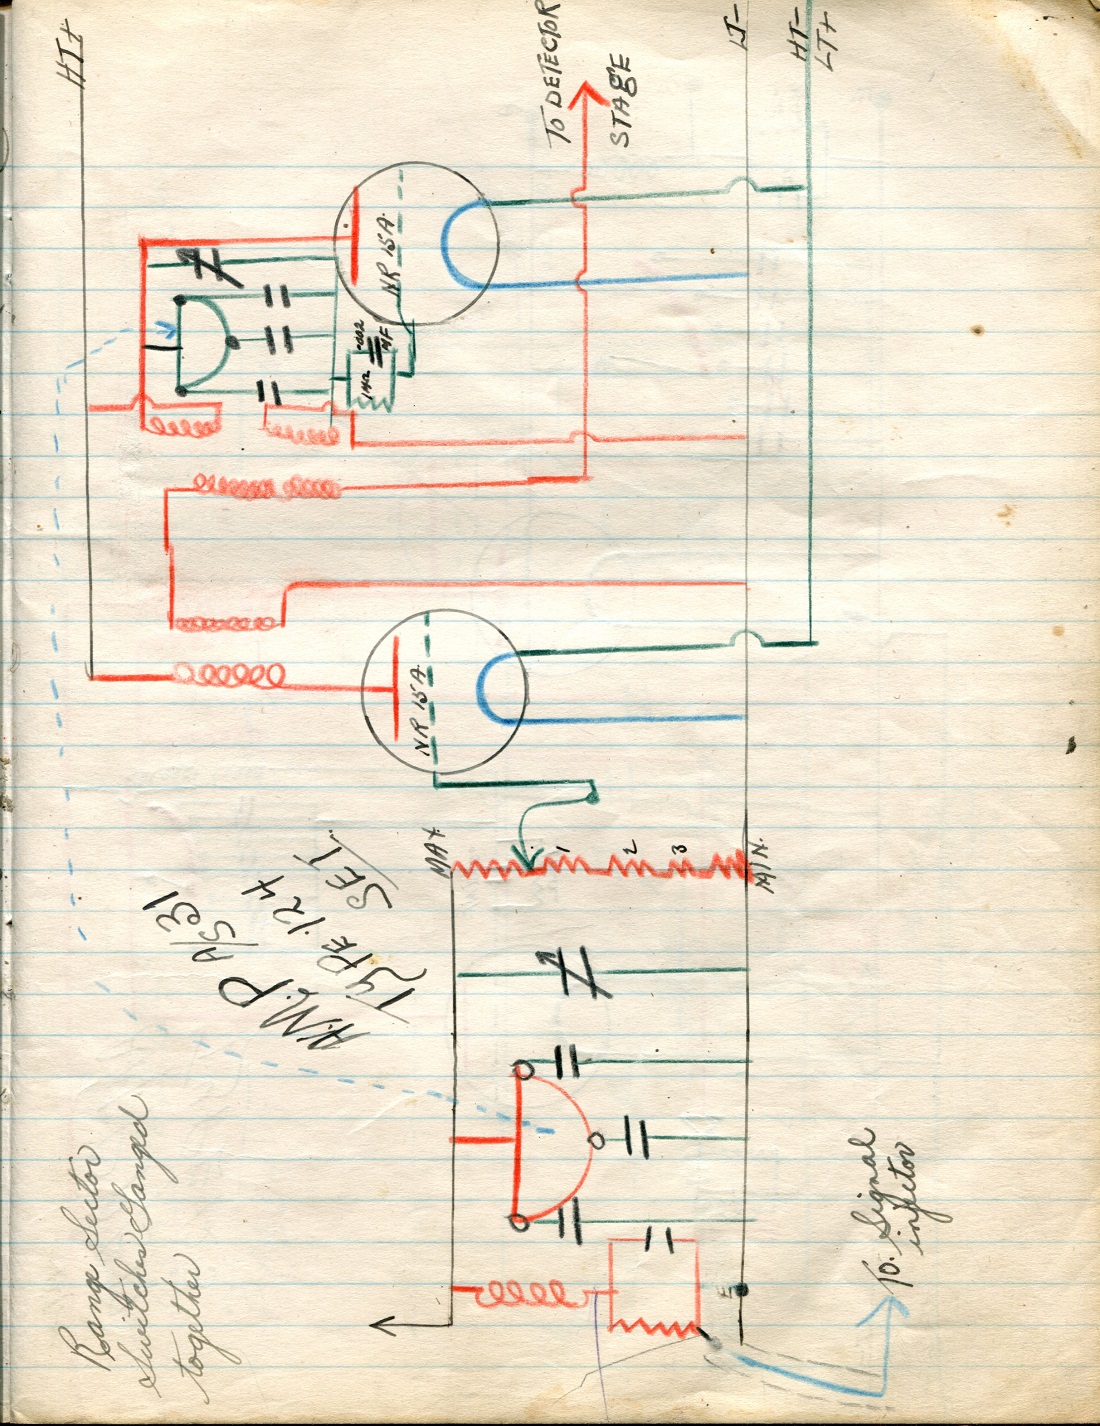 HT+
TO DETECTOR
STAGE
LT-
HT-
LT+
NR 15A.
.0002
MF
1MΩ
NR 15A
MAX
1
2
3
MIN.
H.M.P
Type 124
SET.
Range Sector
Switches Ganged
together
E
To. Signal
injetor